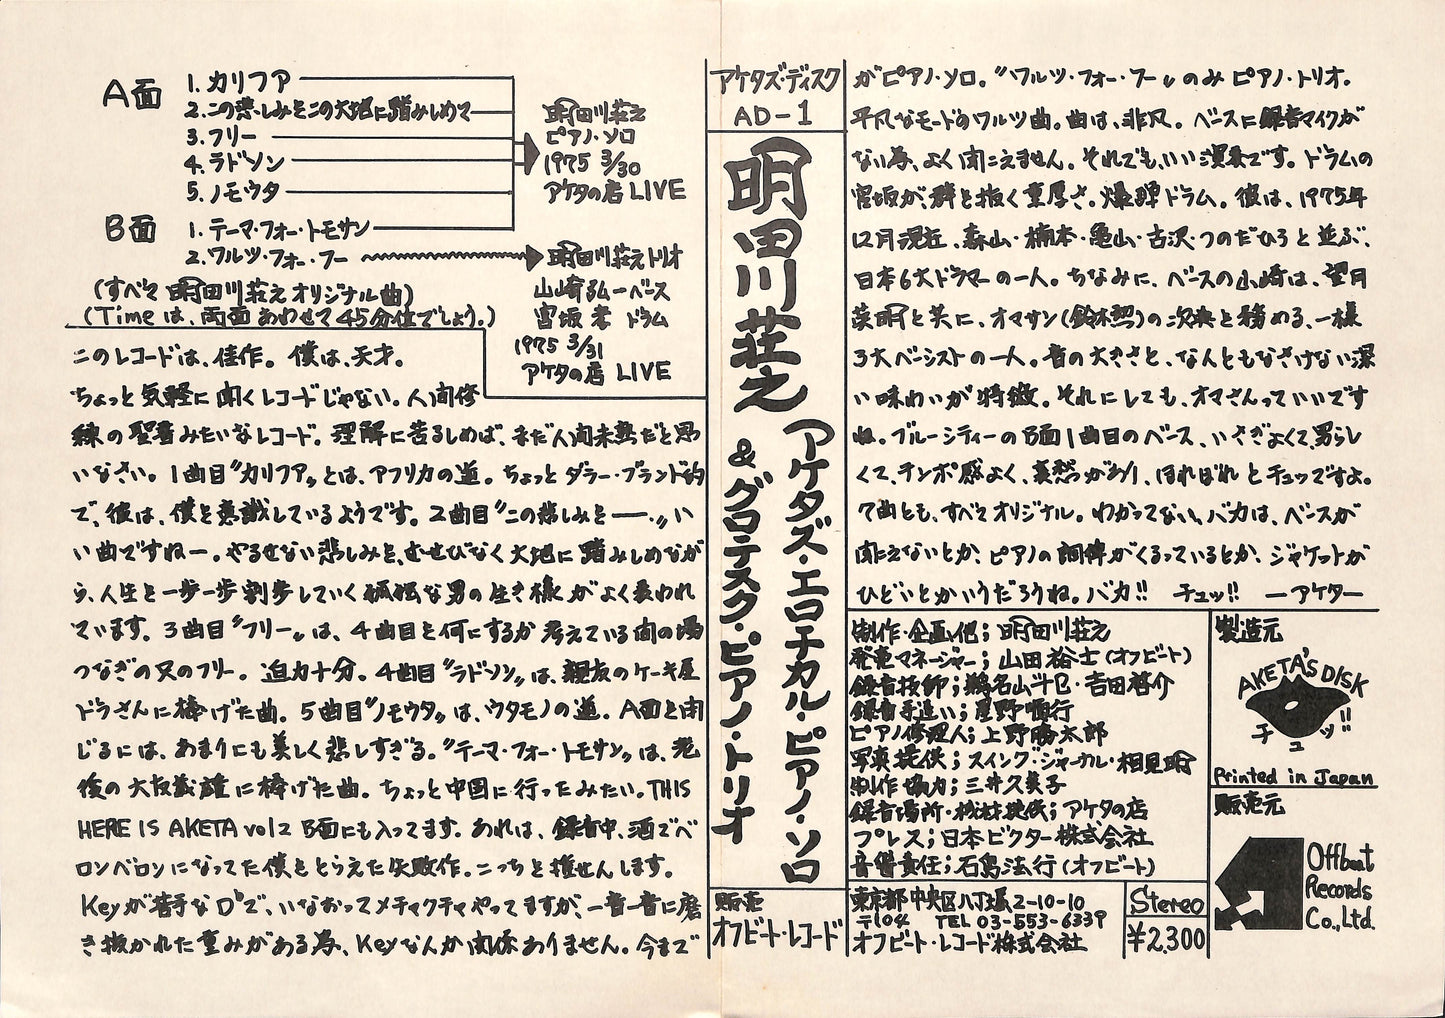 A面
1. カリフア
2. この悲しみをこの大地に踏みしめて
3. フリー
4. ラドソン
5. ノモウタ
B面
1. テーマ・フォー・トモサン
2. ワルツ・フォー・フー
明田川荘之
ピアノ・ソロ
1975 3/30
アケタの店 LIVE
明田川荘之トリオ
山崎弘一ベース
宮坂 孝 ドラム
1975 3/31
アケタの店 LIVE
(すべて 明田川荘之オリジナル曲)
(Timeは、両面あわせて45分位でしょう。)
このレコードは、佳作。僕は、天才。
ちょっと気軽に聞くレコードじゃない。人間修
練の聖書みたいなレコード。理解に苦るしめば、まだ人間未熟だと思
いなさい。1曲目〝カリフア〟とは、アフリカの道。ちょっとダラー・ブランド的
で、彼は、僕を意識しているようです。2曲目〝この悲しみを――.〟い
い曲ですねー。やるせない悲しみを、むせびなく大地に踏みしめなが
ら、人生を一歩一歩割歩していく孤独な男の生き様がよく表われ
ています。3曲目〝フリー〟は、4曲目を何にするか考えている間の場
つなぎの又のフリー。迫力十分。4曲目〝ラドソン〟は、親友のケーキ屋
ドラさんに捧げた曲。5曲目〝ノモウタ〟は、ウタモノの道。A面を閉
じるには、あまりにも美しく悲しすぎる。〝テーマ・フォー・トモサン〟は、老
後の大友義雄に捧げた曲。ちょっと中国に行ったみたい。THIS
HERE IS AKETA vol2 B面にも入ってます。あれは、録音中、酒でベ
ロンベロンになってた僕をとらえた失敗作。こっちを推せんします。
Keyが苦手なD♭で、いなおってメチャクチャやってますが、一音一音に磨
き抜かれた重みがある為、Keyなんか関係ありません。今まで
アケタズ・ディスク
AD-1
明田川荘之
アケタズ・エロチカル・ピアノ・ソロ
&グロテスク・ピアノ・トリオ
販売
オフビート・レコード
がピアノ・ソロ。〝ワルツ・フォー・フー〟のみ ピアノ・トリオ。
平凡なモードのワルツ曲。曲は、非凡。ベースに録音マイクが
ない為、よく聞こえません。それでも、いい演奏です。ドラムの
宮坂が、群を抜く重厚さ。爆弾ドラム。彼は、1975年
12月現在、森山・楠本・亀山・古沢・つのだひろと並ぶ、
日本6大ドラマーの一人。ちなみに、ベースの山崎は、望月
英明と共に、オマサン(鈴木勲)の次典を務める、一様
3大ベーシストの一人。音の大きさと、なんともなさけない深
い味わいが特徴。それにしても、オマさんっていいです
ね。ブルーシティーのB面1曲目のベース、いさぎよくて、男らし
くて、テンポ感よく、哀愁があり、ほればれとチュッですよ。
7曲とも、すべてオリジナル。わかってない、バカは、ベースが
聞こえないとか、ピアノの調律がくるっているとか、ジャケットが
ひどいとかいうだろうね。バカ!! チュッ!! ―アケター
制作・企画他；明田川荘之
発売マネージャー；山田裕士(オフビート)
録音技師；鵜名山斗巳・吉田啓介
録音手追い；星野順行
ピアノ修理人；上野勝太郎
写真提供；スイング・ジャーナル・相見明
制作協力；三井久美子
録音場所・機材提供；アケタの店
プレス；日本ビクター株式会社
音響責任；石島法行(オフビート)
東京都中央区八丁堀2-10-10
〒104 TEL 03-553-6339
オフビート・レコード株式会社
Stereo
¥2,300
製造元
AKETA'S DISK
チュッ!!
Printed in Japan
販売元
Offbeat
Records
Co., Ltd.